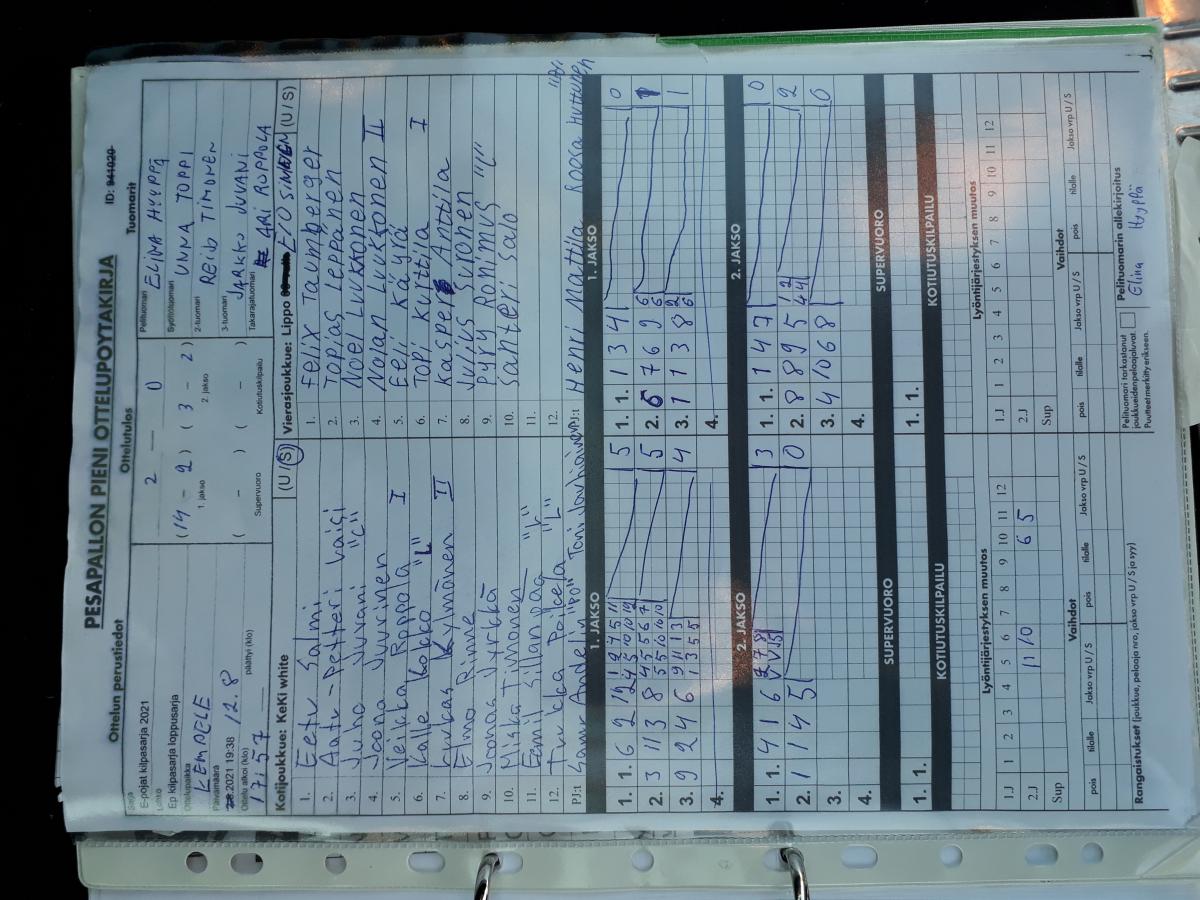 PESÄPALLON PIENI OTTELUPÖYTÄKIRJA
ID: 941020
Ottelun perustiedot
Ottelutulos
Tuomarit
Sarja
E-pojat kilpasarja 2021
Lohko
Ep kilpasarja loppusarja
Ottelupaikka
KEMPELE
Päivämäärä
.2021 19:38 12.8
Ottelu alkoi (klo)
päättyi (klo)
17:57
2 — 0
(14 - 2) (3 - 2)
1. jakso 2. jakso
( - ) ( - )
Supervuoro Kotiutuskilpailu
Pelituomari ELINA HYYPPÄ
Syöttötuomari UNNA TOPPI
2-tuomari REIJO TIMONEN
3-tuomari JARKKO JUVANI
Takarajatuomari ARI ROPPOLA
Kotijoukkue: KeKi white (U / S)
1. Eetu Salmi
2. Aatu-Petteri Väigi
3. Juho Juvani "C"
4. Joona Juurinen
5. Veikka Roppola I
6. Kalle Kokko "L"
7. Luukas Kymönen II
8. Elmo Rinne
9. Joonas Jyrkkä
10. Miska Timonen
11. Eemil Sillanpää "L"
12. Tukka Poikela "L"
PJ:t Samr Andelin "PJ" Toni Jouhiainen
Vierasjoukkue: Lippo E/O SIMAEN (U / S)
1. Felix Taumberger
2. Topias Leppänen
3. Noel Luukkonen
4. Nolan Luukkonen II
5. Eeli Käyrä
6. Topi Kurttila I
7. Kasper Anttila
8. Julius Suronen
9. Pyry Ronimus "L"
10. Santeri Salo
11.
12.
PJ:t Henri Mattila Roosa Huttunen "PJ"
1. JAKSO
1. 1. 6 2 12 5
2. 3 11 3 8 5
3. 9 2 4 6 4
4.
1. JAKSO
1. 1. 1 3 4 0
2. 6 7 6 9 1
3. 1 1 3 8 1
4.
2. JAKSO
1. 1. 4 1 6 3
2. 1 1 4 5 0
3.
4.
2. JAKSO
1. 1. 1 4 7 0
2. 8 8 9 5 2
3. 4 10 6 8 0
4.
SUPERVUORO
1. 1.
SUPERVUORO
1. 1.
KOTIUTUSKILPAILU
KOTIUTUSKILPAILU
Lyöntijärjestyksen muutos
1 2 3 4 5 6 7 8 9 10 11 12
1.J
2.J 11 10 6 5
Sup
Lyöntijärjestyksen muutos
1 2 3 4 5 6 7 8 9 10 11 12
1.J
2.J
Sup
Vaihdot
pois tilalle Jakso vrp U / S pois tilalle Jakso vrp U / S
Vaihdot
pois tilalle Jakso vrp U / S pois tilalle Jakso vrp U / S
Rangaistukset (joukkue, pelaaja nro, jakso vrp U / S ja syy)
Pelituomari tarkastanut
joukkueiden pelaajaluvat.
Puutteet merkitty erikseen.
Pelituomarin allekirjoitus
Elina Hyyppä